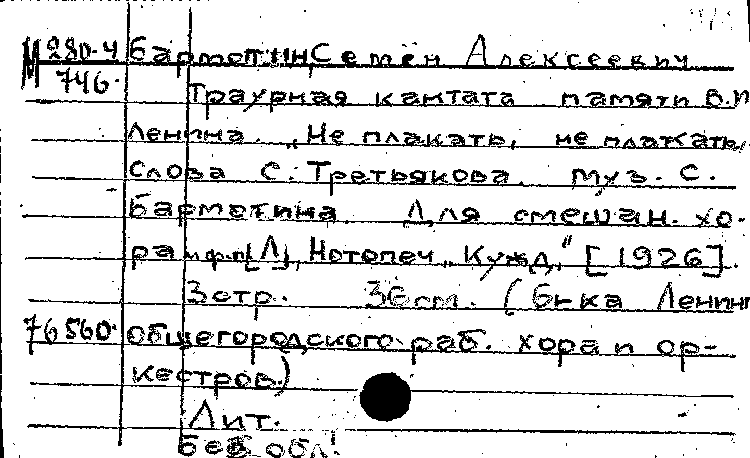 М 280-4 Бармотин Семён Алексеевич
746.
Траурная кантата памяти В.И
Ленина. „Не плакать, не плакать,
Слова С. Третьякова. муз. С.
Бармотина. Для смешан. хо-
ра и ф.п. [Л], Нотопеч „Кужд." [1926]
3 стр. 36 cm. (Б-ка Ленинг
76560. общегородского раб. хора и ор-
кестров.)
Лит.
без обл.